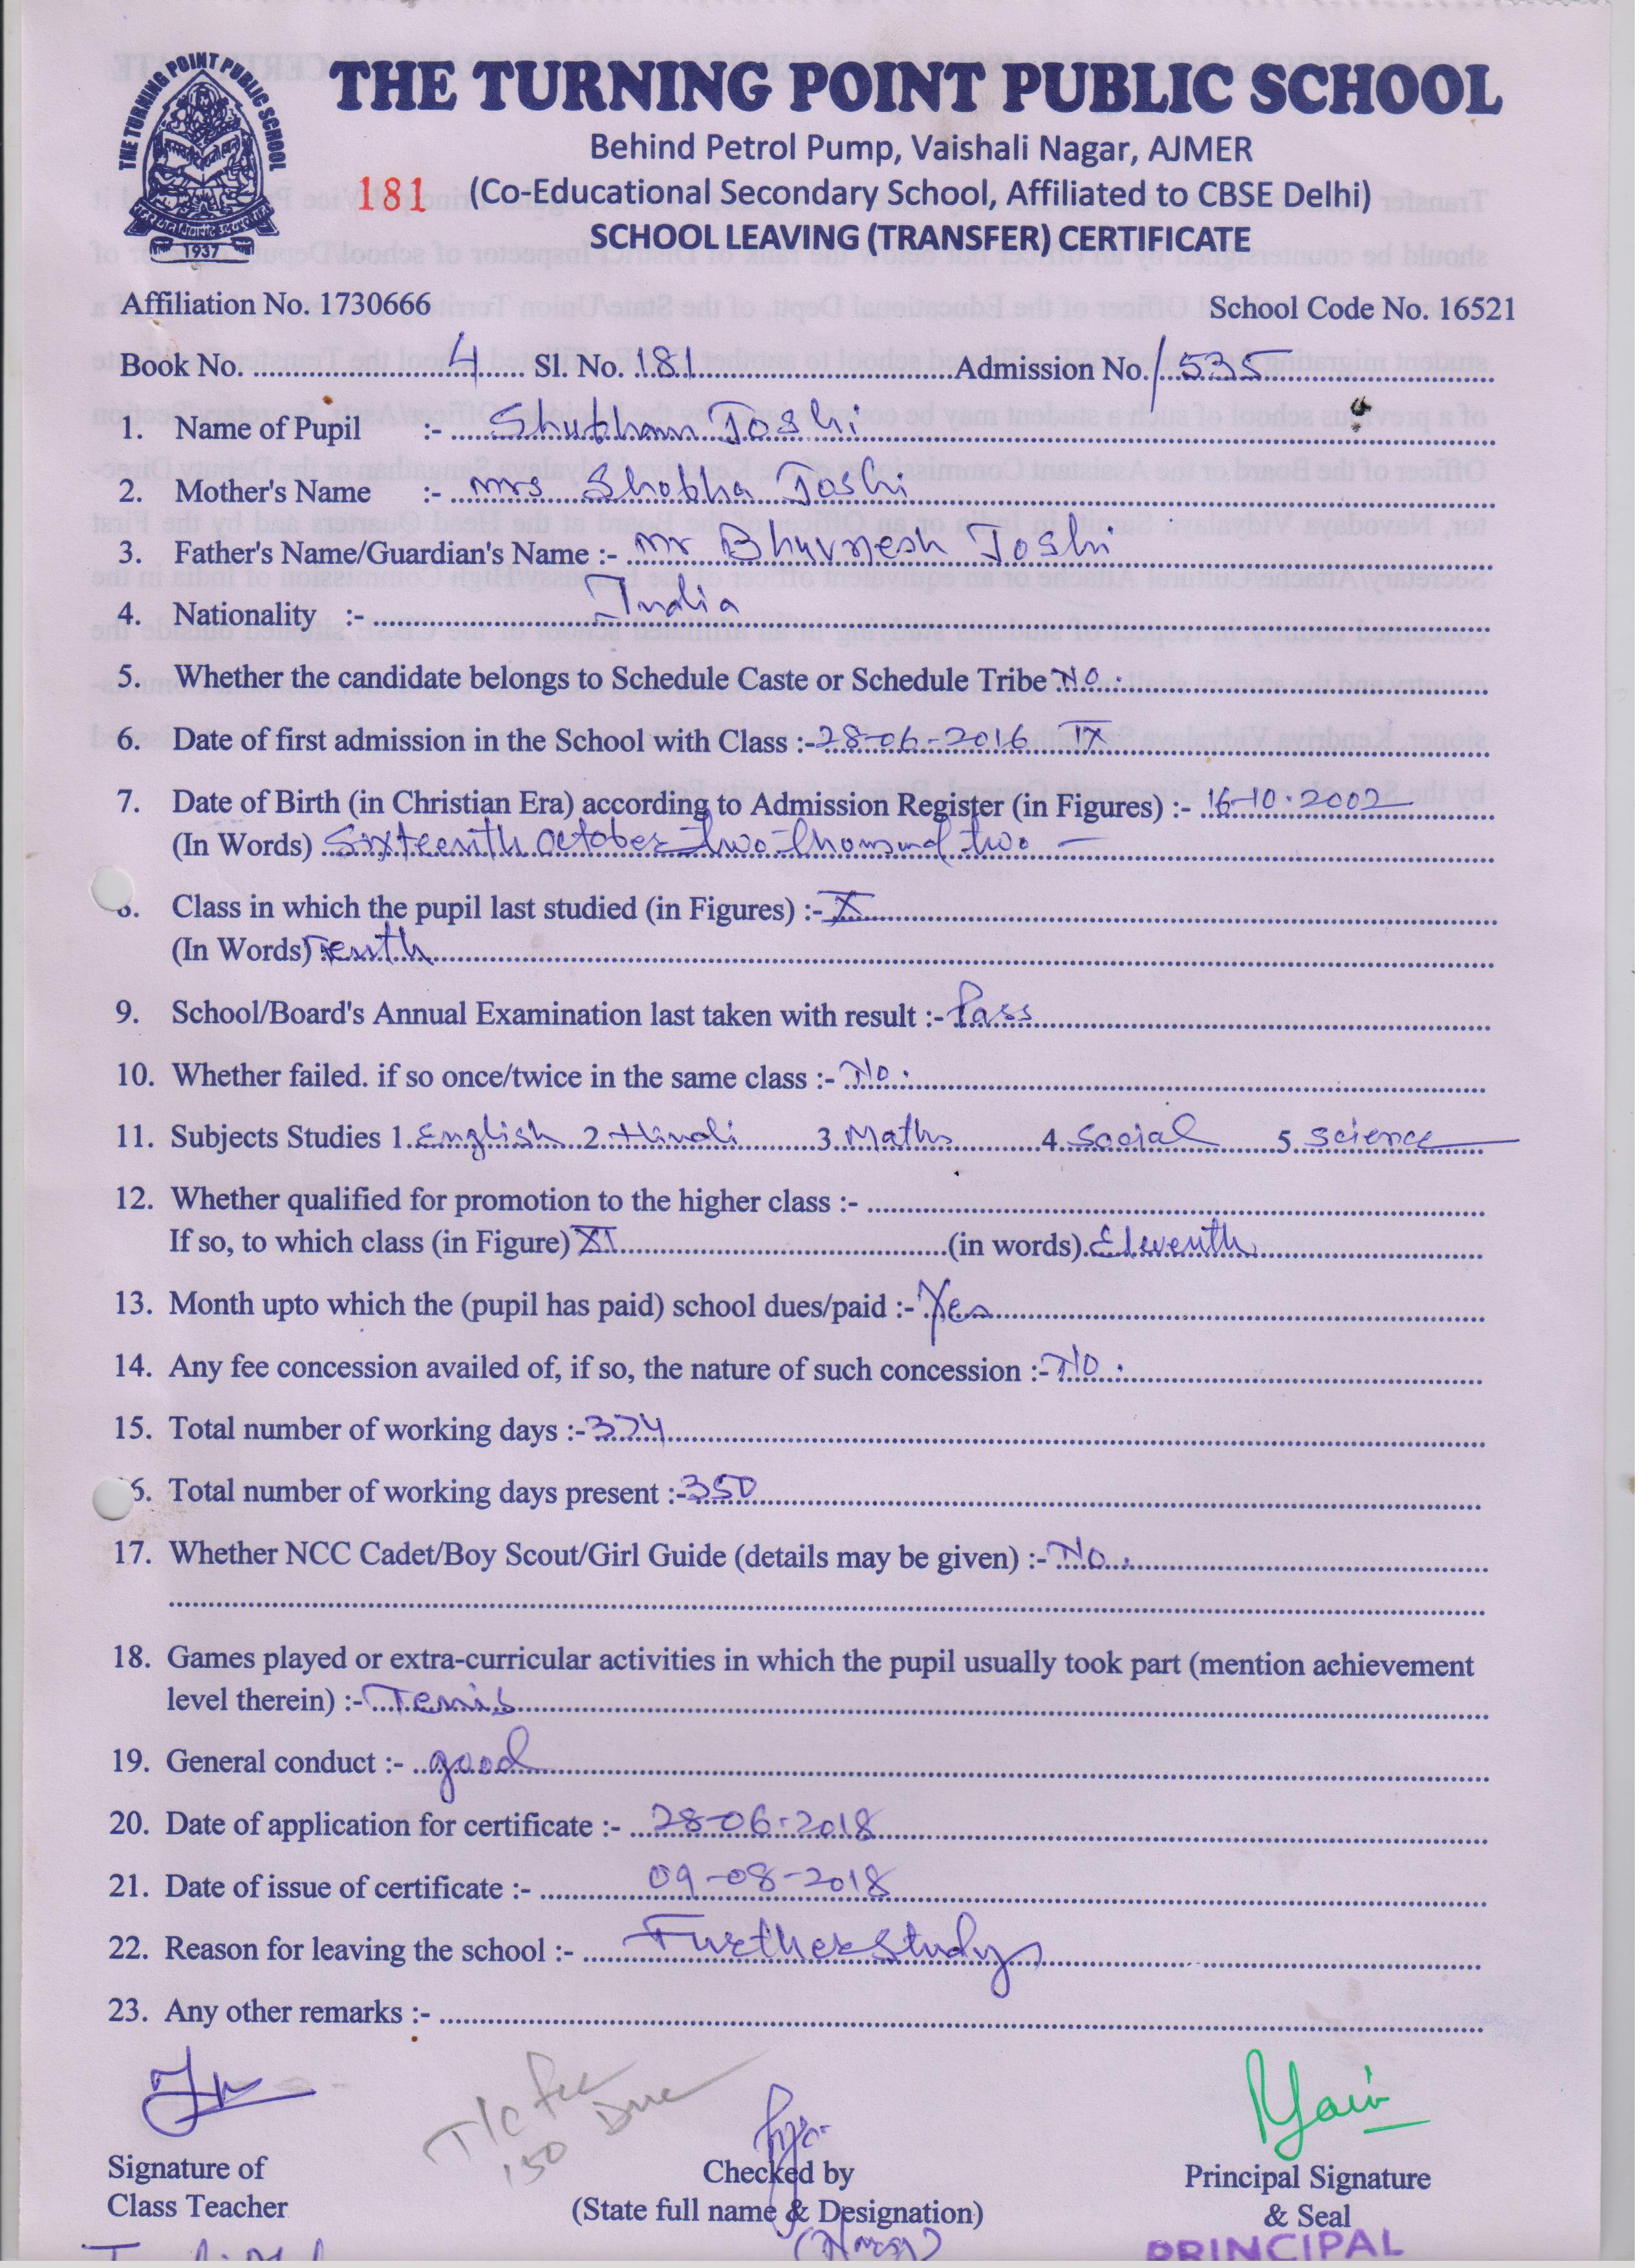 THE TURNING POINT PUBLIC SCHOOL
THE TURNING POINT PUBLIC SCHOOL
1937
Behind Petrol Pump, Vaishali Nagar, AJMER
181 (Co-Educational Secondary School, Affiliated to CBSE Delhi)
SCHOOL LEAVING (TRANSFER) CERTIFICATE
Affiliation No. 1730666 School Code No. 16521
Book No. 4 Sl. No. 181 Admission No. / 535
1. Name of Pupil :- Shubham Joshi
2. Mother's Name :- Mrs Shobha Joshi
3. Father's Name/Guardian's Name :- Mr Bhuvnesh Joshi
4. Nationality :- India
5. Whether the candidate belongs to Schedule Caste or Schedule Tribe No.
6. Date of first admission in the School with Class :- 28-06-2016 IX
7. Date of Birth (in Christian Era) according to Admission Register (in Figures) :- 16-10-2002
(In Words) Sixteenth October two thousand two —
8. Class in which the pupil last studied (in Figures) :- X
(In Words) Tenth
9. School/Board's Annual Examination last taken with result :- Pass
10. Whether failed. if so once/twice in the same class :- No.
11. Subjects Studies 1. English 2. Hindi 3. Maths 4. Social 5. Science
12. Whether qualified for promotion to the higher class :-
If so, to which class (in Figure) XI (in words). Eleventh
13. Month upto which the (pupil has paid) school dues/paid :- Yes
14. Any fee concession availed of, if so, the nature of such concession :- No.
15. Total number of working days :- 374
16. Total number of working days present :- 350
17. Whether NCC Cadet/Boy Scout/Girl Guide (details may be given) :- No.
18. Games played or extra-curricular activities in which the pupil usually took part (mention achievement
level therein) :- Tenis
19. General conduct :- good
20. Date of application for certificate :- 28-06-2018
21. Date of issue of certificate :- 09-08-2018
22. Reason for leaving the school :- Further study
23. Any other remarks :-
T/C fee
150 Due
Signature of Checked by Principal Signature
Class Teacher (State full name & Designation) & Seal
PRINCIPAL